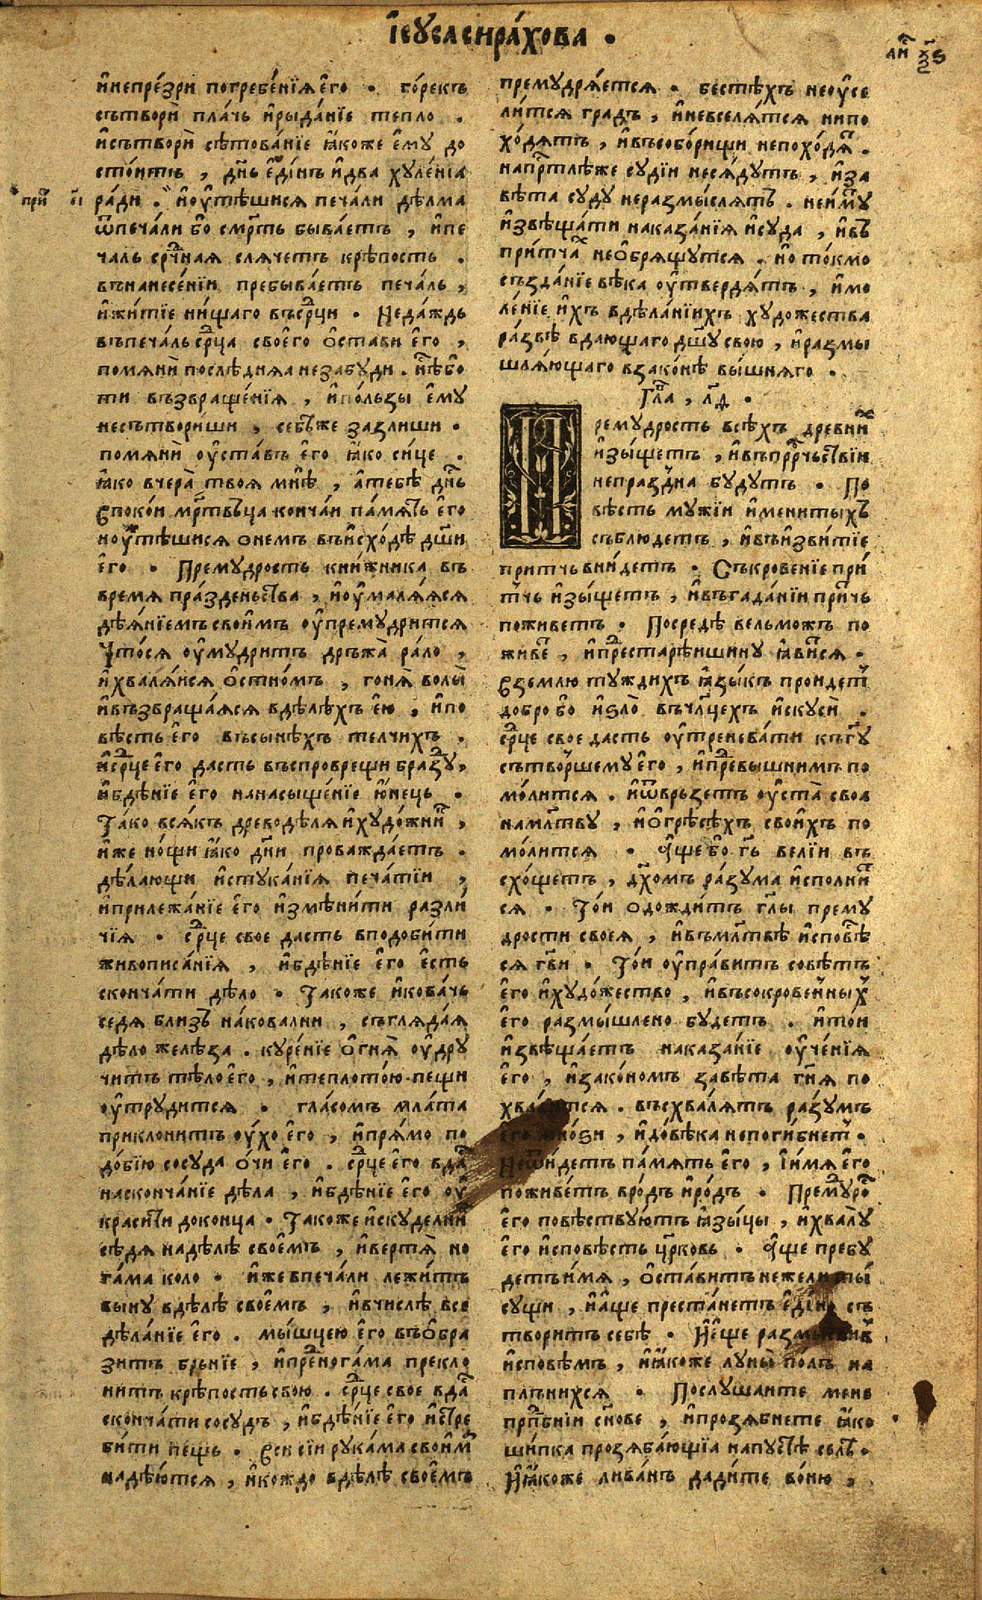 І҆сꙋса сира́хова .
и҆непре́зри погребе́нїѧ є҆го̀ . го́рекъ
сътвори̏ пла́чь и҆рыда́нїе тепло̀ .
и҆сътвори̏ сѣтова́нїе ꙗ҆́коже є҆мꙋ̀ до
сто́итъ , дн҃ь є҆ди́нъ и҆два̀ хꙋле́нїѧ
ра́ди . и҆ꙋ҆тѣ́шисѧ печа́ли дѣ́лма
ѿпеча́ли бо̀ сме́рть быва́етъ , и҆пе
ча́ль срⷣчнаѧ слѧче́тъ крѣ́пость .
вънанесе́нїи пребыва́етъ печа́ль ,
и҆житїѐ ни́щаго въсрⷣци . Неда́ждь
въпеча́ль срⷣца своего̀ о҆ста́ви є҆го̀ ,
помѧни̏ послѣ́днѧѧ незабꙋ́ди . нѣ́бо
ти възвраще́нїѧ , и҆по́льзы є҆мꙋ̀
несътвори́ши , себѣ́же за́злиши .
помѧни̏ ꙋ҆ста́въ є҆го̀ ꙗ҆́ко си́це .
ꙗ҆́ко вчера̀ твоѧ̀ мнѣ̀ , а҆тебѣ̀ дн҃ь
Є҆споко́и мр҃твъца конча́и па́мѧть є҆го̀
ноꙋ҆тѣ́шисѧ ѡ҆не́мъ въи҆схо́дѣ дш҃и
є҆го̀ . Премꙋ́дрость кни́жника въ
вре́мѧ пра́зденьства , и҆ꙋ҆малѧ́ѧсѧ
дѣѧ́нїемъ свои́мъ ꙋ҆премꙋ́дритсѧ
Что́сѧ ꙋ҆мꙋ́дритъ дръжа̀ ра́ло ,
и҆хвалѧ́исѧ о҆стно́мъ , гонѧ̀ волы̀
и҆възвраща́ѧсѧ вдѣ́лѣхъ є҆ю̀ , и҆по
вѣ́сть є҆го̀ въсынѣ́хъ те́лчихъ .
и҆срⷣце є҆го̀ да́сть въспроврещѝ бразꙋ̀ ,
и҆бдѣ́нїе є҆го̀ нанасыще́нїе ю҆́нець .
Та́ко всѧ́къ древодѣ́лѧ и҆хꙋдо́жникъ ,
и҆́же но́щи ꙗ҆́ко дн҃и проважда́етъ .
дѣ́лающи и҆стꙋка́нїѧ печа́тїи ,
и҆прилежа́нїе є҆го̀ и҆змѣни́ти разли́
чїѧ . срⷣце своѐ да́сть вподо́бити
живописа́нїѧ , и҆бдѣ́нїе є҆го̀ є҆́сть
сконча́ти дѣ́ло . Та́коже и҆кова́чь
седѧ̀ бли́зъ нако́валпи , съглѧда́ѧ
дѣ́ло желѣ́за . кꙋре́нїе о҆гнѧ̀ ꙋ҆дрꙋ
чи́тъ тѣ́ло є҆го̀ , и҆теплото́ю пе́щи
ꙋ҆трꙋди́тсѧ . гла́сомъ мла́та
прикло́нитъ ꙋ҆́хо є҆го̀ , и҆прѧ́мо по
до́бїю сосꙋ́да ѻ҆́чи є҆го̀ . срⷣце є҆го̀ вда́
насконча́нїе дѣ́ла , и҆бдѣ́нїе є҆го̀ ꙋ҆
краси́ти доконца̀ . Та́коже и҆скꙋде́льни
сѣ́дѧ надѣ́лѣ свое́мъ , и҆вертѧ̀ но
га́ма ко́ло . и҆́же впеча́ли лежи́тъ
вы́нꙋ вдѣ́лѣ свое́мъ , и҆вчислѣ̀ все
дѣ́ланїе є҆го̀ . мы́шцею є҆го̀ въѻ҆бра
зи́тъ бре́нїе , и҆пре́нога́ма прекло
ни́тъ крѣ́пость свою̀ . срⷣце своѐ вда́
сконча́ти сосꙋ́дъ , и҆бдѣ́нїе є҆го̀ и҆стре
би́ти пе́щь . Вси сїи рꙋка́ма свои́ма
надѣ́ютсѧ , и҆ко́ждо вдѣ́лѣ свое́мъ
при
премꙋдрѧ́етсѧ . бестѣ́хъ неꙋ҆се
ли́тсѧ гра́дъ , и҆невселѧ́тсѧ нипо
хо́дѧтъ , и҆въсобо́рищи непохо́дѧ .
напрⷭтлѣ́же сꙋдїи несѧ́дꙋтъ , и҆за
вѣ́та сꙋдꙋ̀ неразмы́слѧтъ . неи҆мꙋ
и҆звѣща́ти наказа́нїѧ и҆сꙋда̀ , и҆въ
при́тчахъ необрѧ́щꙋтсѧ . но то́кмо
създа́нїе вѣ́ка ꙋ҆твердѧ́тъ , и҆мо
ле́нїе и҆́хъ вдѣ́ланїихъ хꙋдо́жества
ра́звѣ вдаю́щаго дш҃ꙋ свою̀ , и҆размы
шлѧ́ющаго взако́нѣ вы́шнѧго .
Гла , л҃д .
Премꙋ́дрость всѣ́хъ дре́вни́х
и҆зы́щетъ , и҆въпрⷪ҇рчьствїи
непра́здна бꙋ́дꙋтъ . По
вѣ́сть мꙋ́жїи и҆мени́тыхъ
съблюде́тъ , и҆въи҆зви́тїе
при́тчь вни́детъ . Съкрове́нїе при́
тчь и҆зы́щетъ , и҆въгада́нїи при́тчь
поживе́тъ . Посредѣ̀ вельмо́жъ по
живе́ , и҆пре́старѣ́ишинꙋ ꙗ҆ви́сѧ .
Вземлю̀ тꙋ́ждихъ ꙗ҆зы́къ про́идетъ
добро̀ бо̀ и҆ѕло̀ въчл҃цехъ и҆скꙋсѝ .
срⷣце своѐ да́сть ꙋ҆треневати къгꙋ
сътво́ршемꙋ є҆го̀ , и҆пре́вышнимъ по
мо́литсѧ . и҆ѿврьзе́тъ ꙋ҆ста̀ своѧ̀
намл҃твꙋ , и҆ѡ҆грѣсѣ́хъ свои́хъ по
мо́литсѧ . А҆́ще бо̀ гь ве́лїи въ
схо́щетъ , дх҃омъ ра́зꙋма и҆спо́лни
сѧ . То́и ѡ҆дожди́тъ гл҃ы премꙋ́
дрости своеѧ̀ , и҆въмл҃твѣ и҆сповѣ
сѧ гв҃и . То́и ꙋ҆пра́витъ совѣ́тъ
є҆го̀ и҆хꙋдо́жество , и҆въсокрове́нныхъ
є҆го̀ размы́шлено бꙋ́детъ . и҆то́и
и҆звѣща́етъ наказа́нїе ꙋ҆че́нїѧ
є҆го̀ , и҆зако́номъ завѣ́та гн҃ѧ по
хва́литсѧ . въсхва́лѧтъ ра́зꙋмъ
є҆го̀ мно́ѕи , и҆до́вѣка непоги́бнетъ .
Неѿи́детъ па́мѧть є҆го̀ , і҆и́мѧ є҆го̀
поживе́тъ вро́дъ и҆ро́дъ . Премꙋ́дро
є҆го̀ повѣствꙋ́ютъ ꙗ҆зы́цы , и҆хвалꙋ̀
є҆го̀ и҆сповѣ́сть цр҃ковь . А҆́ще пребꙋ́
детъ и҆́мѧ , ѻ҆ста́витъ нежели ты
сꙋщи , и҆а҆́ще преста́нетъ є҆ди́но съ
твори́тъ себѣ̀ . И҆є҆ще размы́слив
и҆сповѣ́мъ , и҆ꙗ҆́коже лꙋны̀ по́лъ на
плъ́нихсѧ . Послꙋ́шаите менѐ
прпⷣбнїи сн҃ове , и҆прозѧ́бнете ꙗ҆́ко
ши́пка прозѧба́ющїа напꙋ́стѣ се́лъ .
И҆ꙗ҆́коже лива́нъ дади́те воню̀ ,